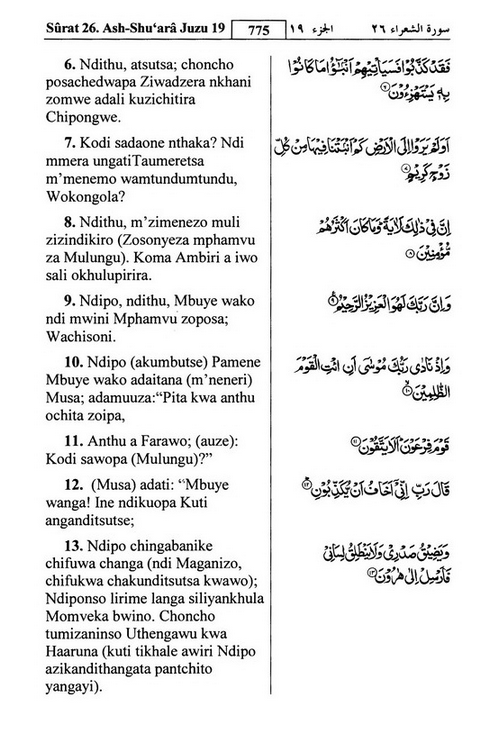 Sûrat 26. Ash-Shu‘arâ Juzu 19
775
الجزء ١٩
سورة الشعراء ٢٦
6. Ndithu, atsutsa; choncho
posachedwapa Ziwadzera nkhani
zomwe adali kuzichitira
Chipongwe.
7. Kodi sadaone nthaka? Ndi
mmera ungatiTaumeretsa
m’menemo wamtundumtundu,
Wokongola?
8. Ndithu, m’zimenezo muli
zizindikiro (Zosonyeza mphamvu
za Mulungu). Koma Ambiri a iwo
sali okhulupirira.
9. Ndipo, ndithu, Mbuye wako
ndi mwini Mphamvu zoposa;
Wachisoni.
10. Ndipo (akumbutse) Pamene
Mbuye wako adaitana (m’neneri)
Musa; adamuuza:“Pita kwa anthu
ochita zoipa,
11. Anthu a Farawo; (auze):
Kodi sawopa (Mulungu)?”
12. (Musa) adati: “Mbuye
wanga! Ine ndikuopa Kuti
anganditsutse;
13. Ndipo chingabanike
chifuwa changa (ndi Maganizo,
chifukwa chakunditsutsa kwawo);
Ndiponso lirime langa siliyankhula
Momveka bwino. Choncho
tumizaninso Uthengawu kwa
Haaruna (kuti tikhale awiri Ndipo
azikandithangata pantchito
yangayi).
فَقَدْ كَذَّبُوْا فَسَيَأْتِيْهِمْ اَنْۢبٰٓؤُا مَا كَانُوْا
بِهٖ يَسْتَهْزِءُوْنَ ٦
اَوَلَمْ يَرَوْا اِلَى الْاَرْضِ كَمْ اَنْۢبَتْنَا فِيْهَا مِنْ كُلِّ
زَوْجٍ كَرِيْمٍ ٧
اِنَّ فِيْ ذٰلِكَ لَاٰيَةً وَمَا كَانَ اَكْثَرُهُمْ
مُّؤْمِنِيْنَ ٨
وَاِنَّ رَبَّكَ لَهُوَ الْعَزِيْزُ الرَّحِيْمُ ٩
وَاِذْ نَادٰى رَبُّكَ مُوْسٰٓى اَنِ ائْتِ الْقَوْمَ
الظّٰلِمِيْنَ ١٠
قَوْمَ فِرْعَوْنَ اَلَا يَتَّقُوْنَ ١١
قَالَ رَبِّ اِنِّيْٓ اَخَافُ اَنْ يُّكَذِّبُوْنِ ١٢
وَيَضِيْقُ صَدْرِيْ وَلَا يَنْطَلِقُ لِسَانِيْ
فَاَرْسِلْ اِلٰى هٰرُوْنَ ١٣